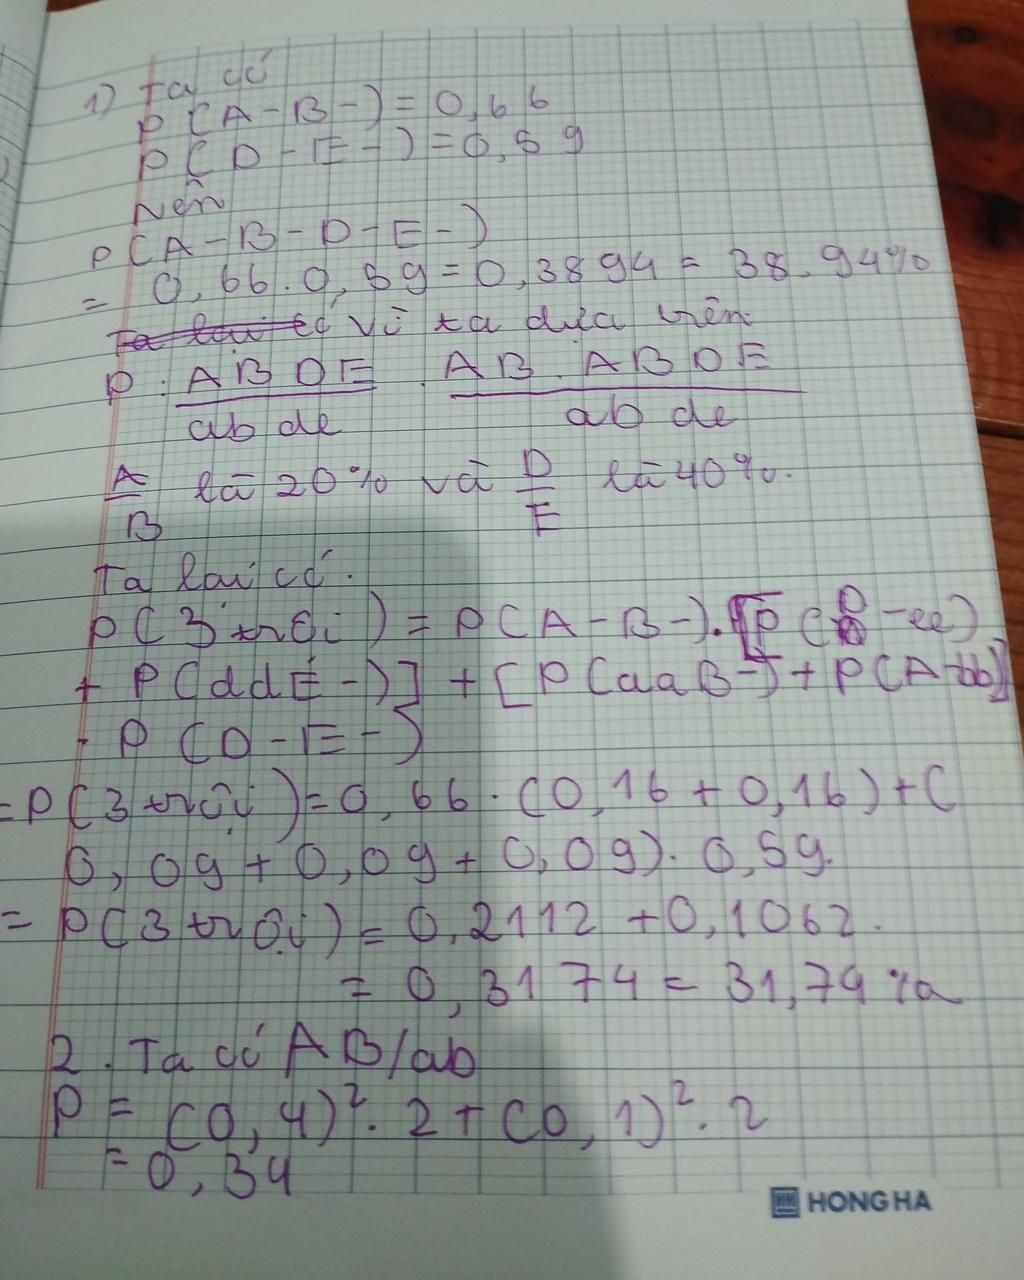 1) Ta có
P(A-B-) = 0,66
P(D-E-) = 0,59
Nên
P(A-B-D-E-)
= 0,66.0,59 = 0,3894 = 38,94%
Ta lại có vì ta dựa trên
P. AB DE/ab de . AB . AB DE/ab de
A/B là 20% và D/E là 40%.
Ta lại có.
P(3 trội) = P(A-B-).[P(D-ee)
+ P(ddE-)] + [P(aaB-) + P(A-bb)]
. P(D-E-)
=P(3 trội) = 0,66.(0,16+0,16)+(
0,09+0,09+0,09).0,59.
= P(3 trội) = 0,2112 + 0,1062.
= 0,3174 = 31,74%
2. Ta có AB/ab
P = (0,4)².2+(0,1)².2
= 0,34
HONG HA